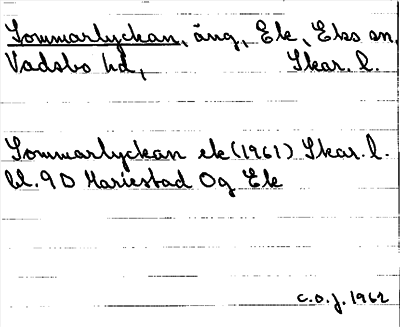 Sommarlyckan, äng, Ek, Eks sn,
Vadsbo hd, Skar. l.
Sommarlyckan ek (1961) Skar. l.
bl. 9D Mariestad Og Ek
C.O.J. 1962